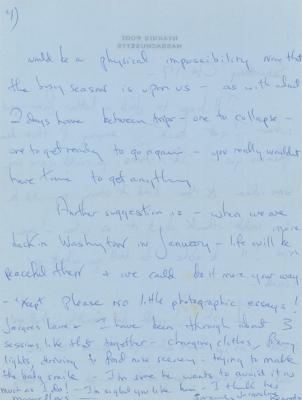 4)
HYANNIS PORT
MASSACHUSETTS
would be a physical impossibility. Now that
the busy season is upon us - as with about
2 days home between trips - one to collapse -
one to get ready to go again - you really wouldn't
have time to get anything
Another suggestion is - when we are
back in Washington in January - life will be more
peaceful then & we could do it more your way
- except please no little photographic essays!
Jacques Lowe & I have been through about 3
sessions like that together - changing clothes,
lights, driving to find nice scenery - trying to make
the baby smile - I'm sure he wants to avoid it as
much as I do! - I'm so glad you like him - I think he's